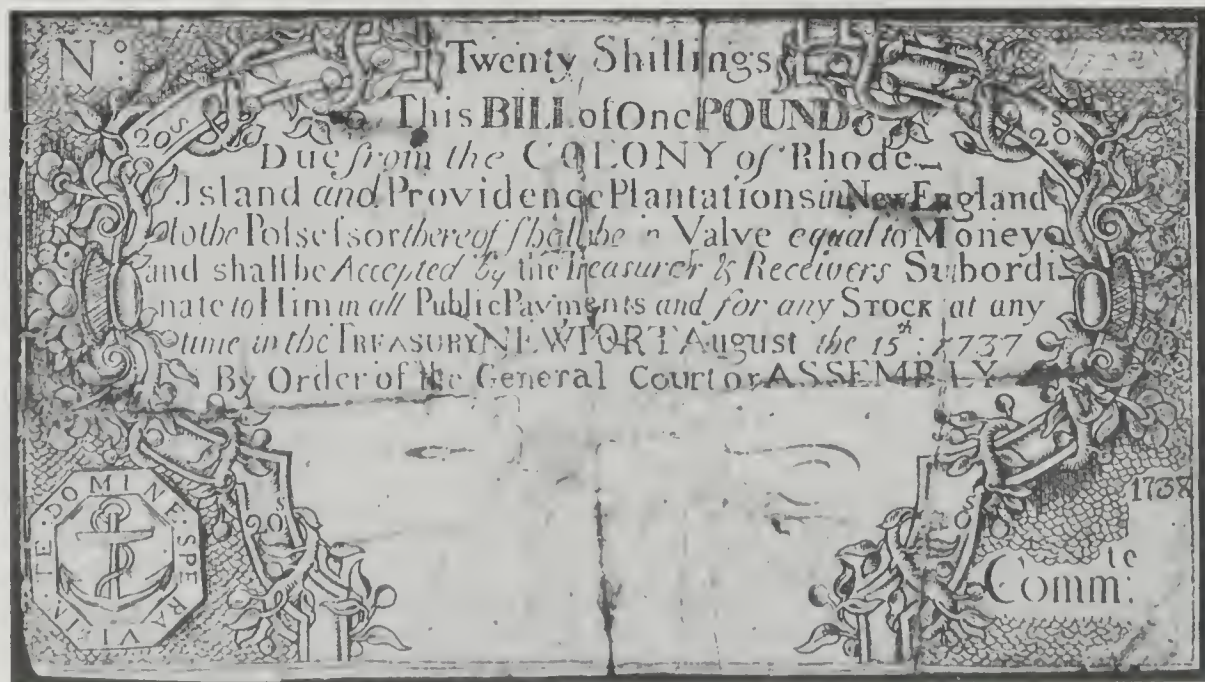 N:
Twenty Shillings
This BILL of One POUND
Due from the COLONY of Rhode
Island and Providence Plantations in New England
to the Possessor thereof shall be in Valve equal to Money
and shall be Accepted by the Treasurer & Receivers Subordi-
nate to Him in all Public Payments and for any STOCK at any
time in the TREASURY NEWPORT August the 15th: 1737
By Order of the General Court or ASSEMBLY
20S
20S
20S
1738
IN TE DOMINE SPERAVI
Comm:te